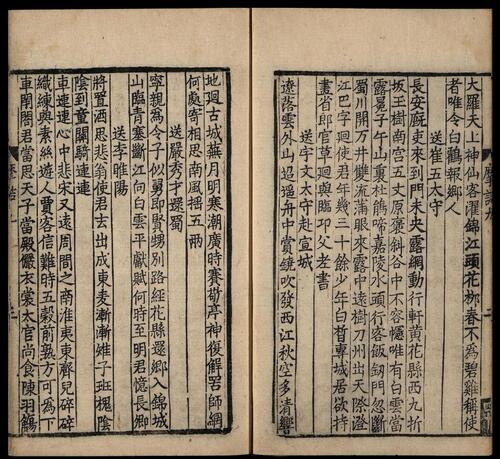 大羅天上神仙客濯錦江頭花柳春不為碧雞稱使
者唯令白鶴報鄉人
送崔五太守
長安廄吏來到門朱文露網動行軒黃花縣西九折
坂王樹南宮五丈原褒斜谷中不容幰唯有白雲當
露晃子午山裏杜鵑啼嘉陵水頭行客飯劒門忽斷
蜀川開万井雙流滿眼來霧中遠樹刀州出天際澄
江巴字迴使君年幾三十餘少年白皙專城居欲持
畫省郎官筆迴與臨邛父老書
送宇文太守赴宣城
遼落雲外山迢遞舟中賞鐃吹發西江秋空多清響
地迥古城蕪月明寒潮廣時賽敬亭神復解罟師網
何處寄相思南風揺五兩
送嚴秀才還蜀
寧親為令子似舅即賢甥別路經花縣還鄉入錦城
山臨青塞斷江向白雲平獻賦何時至明君憶長卿
送李睢陽
將置酒思悲翁使君去出城東麥漸漸雉子班槐陰
陰到童關騎連連
車遲遲心中悲宋又遠周間之南淮夷東齊兒碎碎
織練與素絲遊人賈客信難持五穀前熟方可為下
車閉閤君當思天子當殿儼衣裳太官尚食陳羽觴